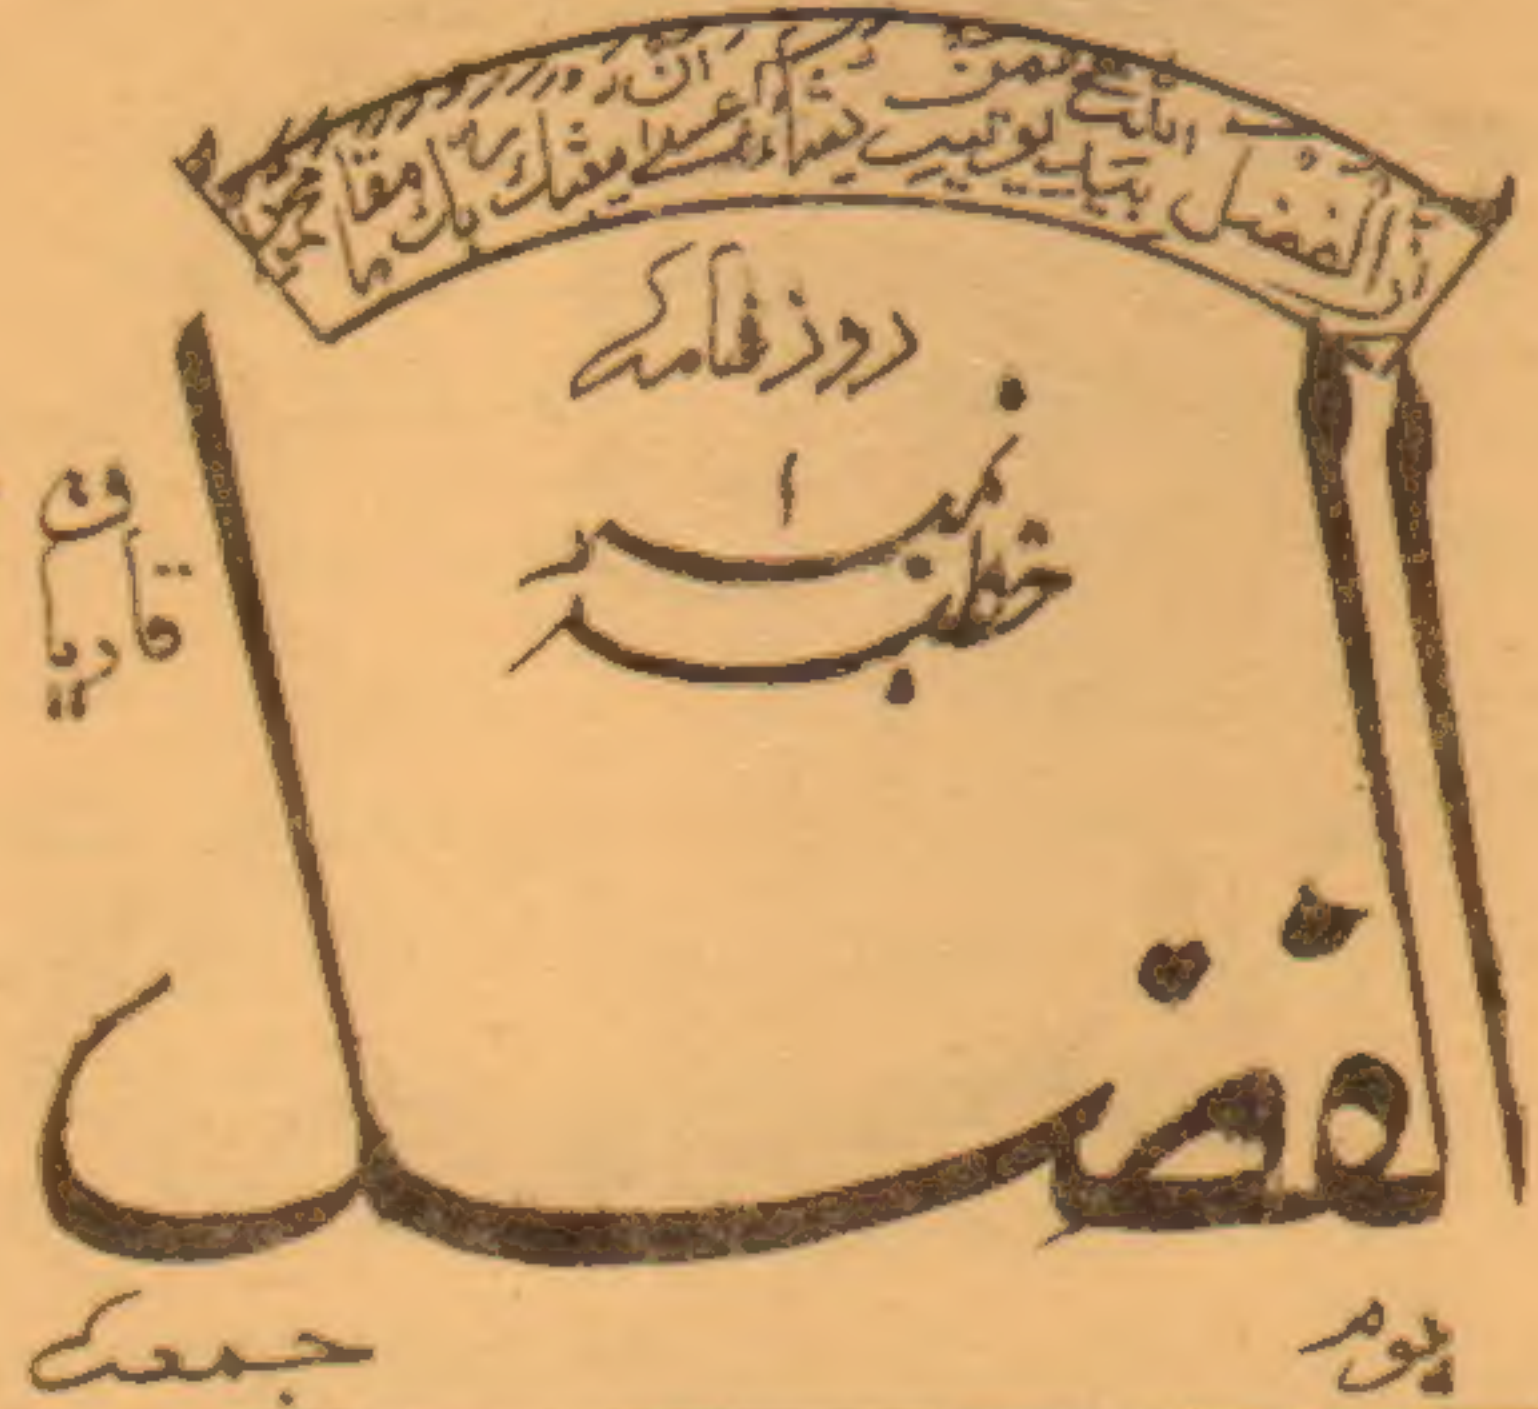 ان الفضل بیدِ اللہ یؤتیہ من یشاء عسیٰ ان یبعثک ربک مقاما محمودا
روزنامہ
خطبہ نمبر ۱
قادیان
الفضل
یوم جمعہ